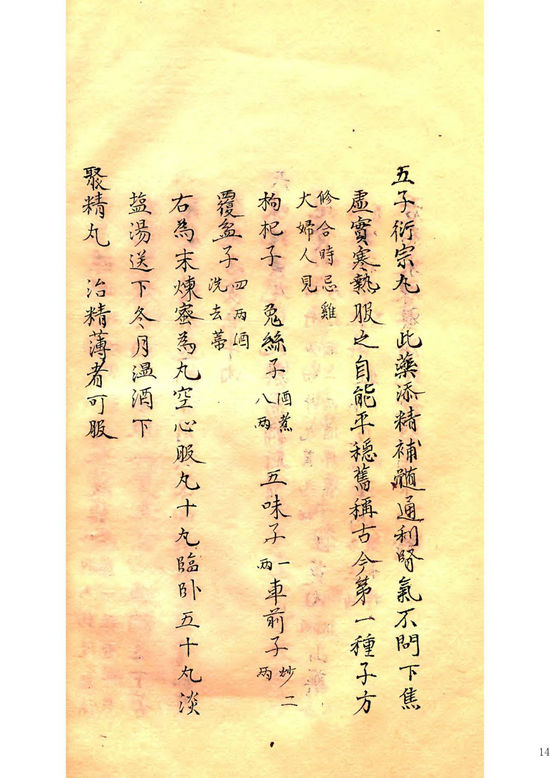 五子衍宗丸 此藥添精補髓通利腎氣不問下焦
虛實寒熱服之自能平穩舊稱古今第一種子方
修合時忌雞
犬婦人見
枸杞子 兔絲子 酒蒸八兩 五味子 一兩 車前子 炒二兩
覆盆子 四兩酒洗去蒂
右為末煉蜜為丸空心服九十丸臨卧五十丸淡
盐湯送下冬月溫酒下
聚精丸 治精薄者可服
14